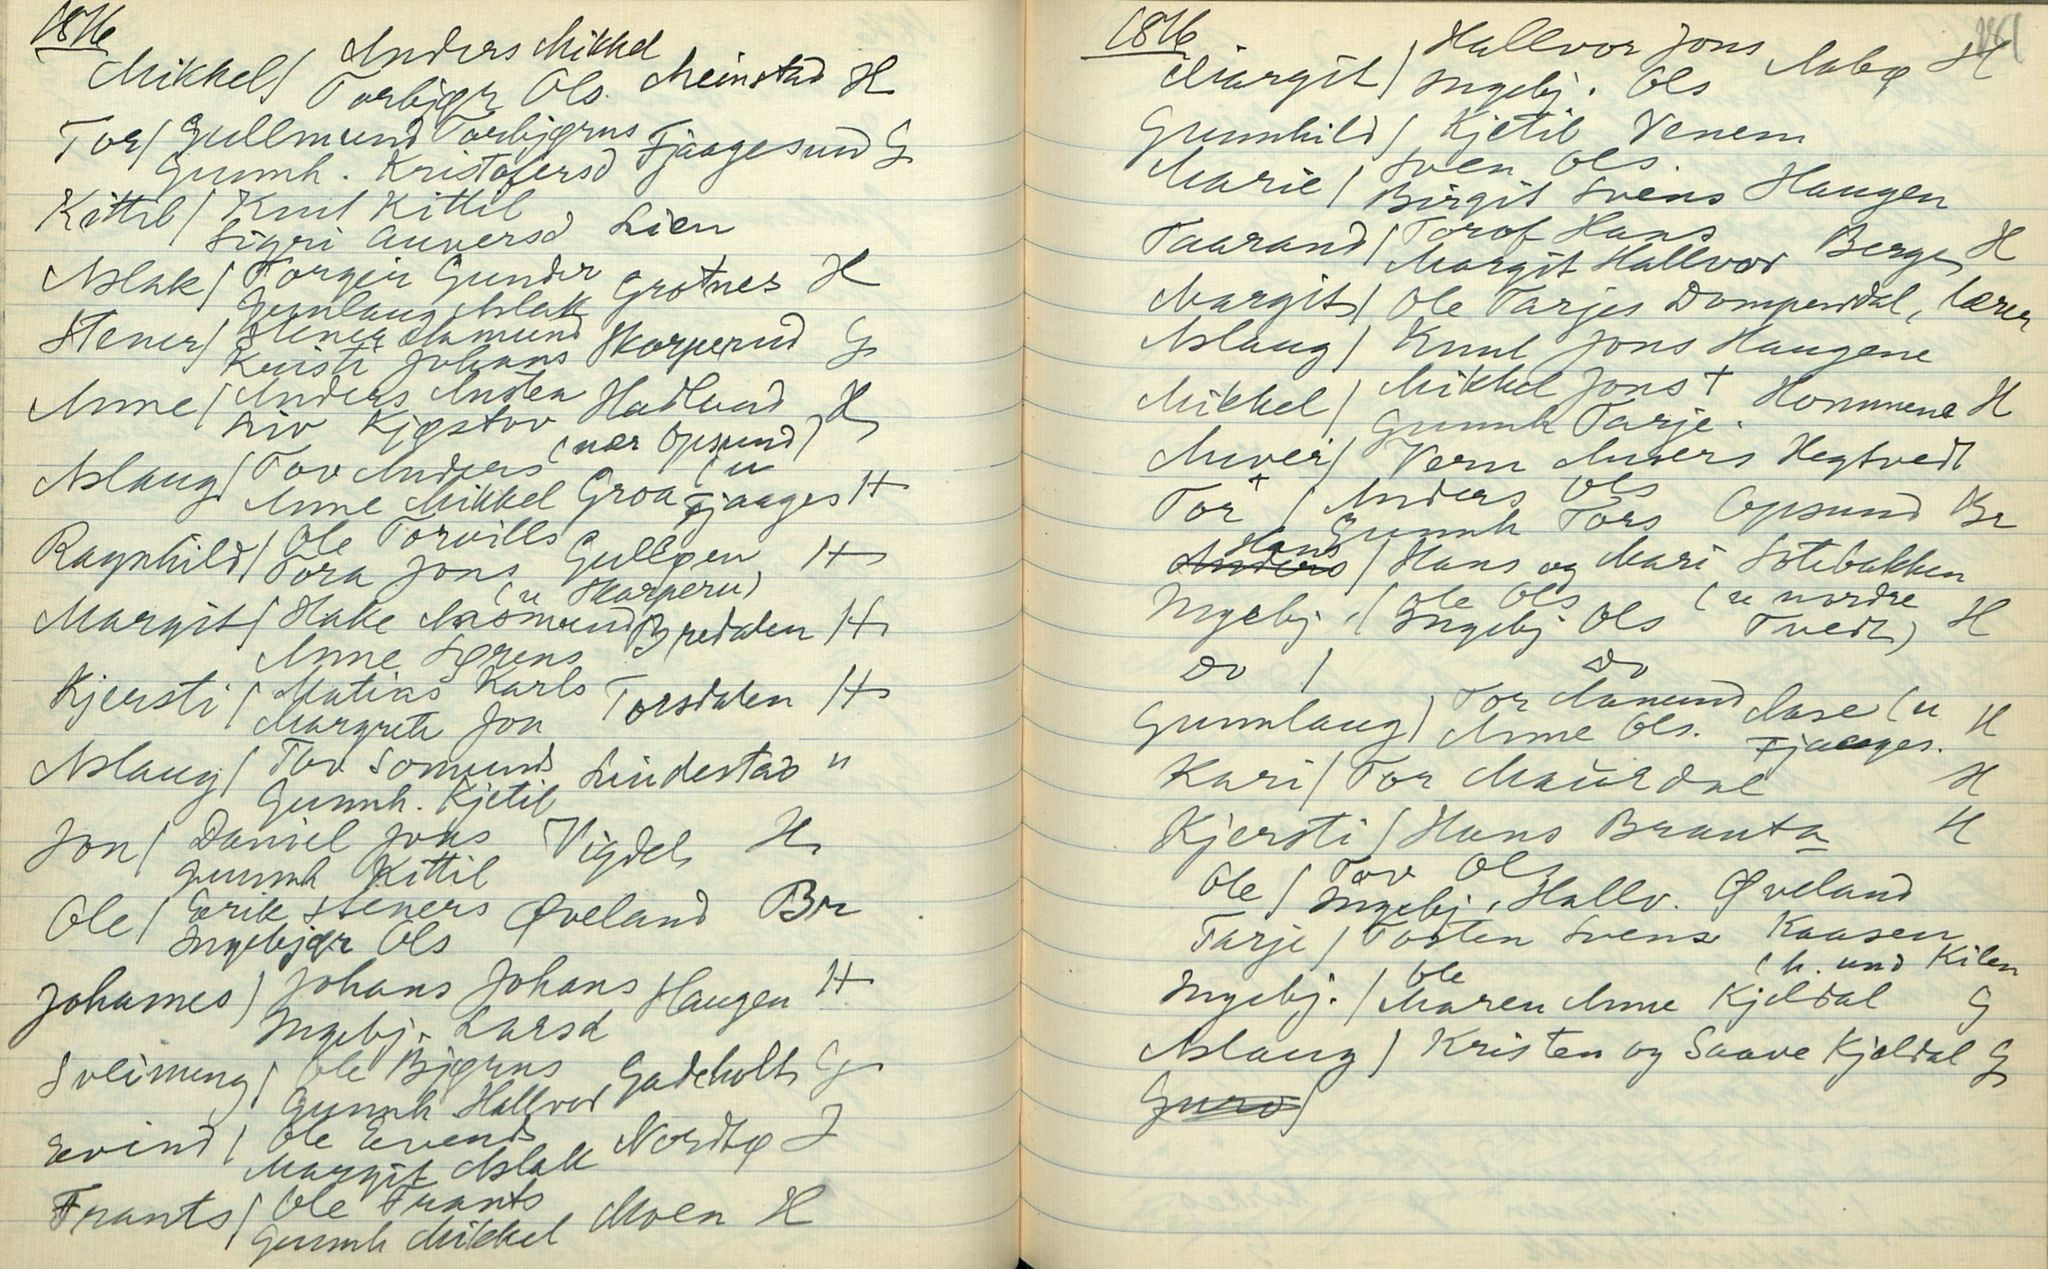 1876
Mikkel / Anders Mikkel
Torbjør Ols. Meinstad H
Tor / Gullmund Torbjørns Fjaagesund G
Gunnh. Kristofersd
Kittil / Knut Kittil
Sigri Auversd Lien
Aslak / Torgeir Gunder Grotnes H
Gunlaug Aslak
Stener / Stener Aamund Skorperud G
Kristi Johans
Anne / Anders Austen Hadlund H
Liv Kjøstov (nær Opsund)
Aslaug / Tov Anders (u
Anne Mikkel Groa Fjaages H
Ragnhild / Ole Torvills Gulløen H
Tora Jons (u Skorperu)
Margit / Hake Aasmund Bredalen H
Anne Sørens
Kjersti / Matias Karls Torsdalen H
Margrete Jon
Aslaug / Tov Somunds Lindestad "
Gunnh. Kjetil
Jon / Daniel Jons Vigdel H
Gunnh Kittil
Ole / Erik Steners Øveland Br
Ingebjør Ols
Johannes / Johans Johans Haugen H
Ingebj. Larsd
Sveinung / Ole Bjørns Gadeholt G
Gunnh Hallvor
Evind / Ole Evends Nordbø J
Margit Aslak
Frants / Ole Frants Moen H
Gunnh Mikkel
1876
Margit / Hallvor Jons Aabø H
Ingebj. Ols
Gunnhild / Kjetil Venem
Marie / Sven Ols.
Birgit Svens Haugen
Taarand / Torof Hans Berge H
Margit Hallvor
Margit / Ole Tarjes Dompendal, lærer
Aslaug / Knut Jons Haugene
Mikkel / Mikkel Jons + Hommene H
Gunnh Tarje.
Auver / Vern Auvers Hegtvedt
Tor + / Anders Ols Opsund Br
Gunnh Tors
Anders Hans / Hans og Mari Sotebakken
Ingebj. / Ole Ols (u nordre
Ingebj Ols Tvedt) H
Do / Do
Gunnlaug / Tor Aamund Aase (u H
Anne Ols. Fjaages.
Kari / Tor Maurdal H
Kjersti / Hans Branta H
Ole / Tov Ols
Ingebj. Hallv. Øveland
Tarje / Tosten Svens Kaasen
(h. und Kilen
Ingebj. / Ole
Maren Anne Kjeldal G
Aslaug / Kristen og Saave Kjeldal G
Guro /